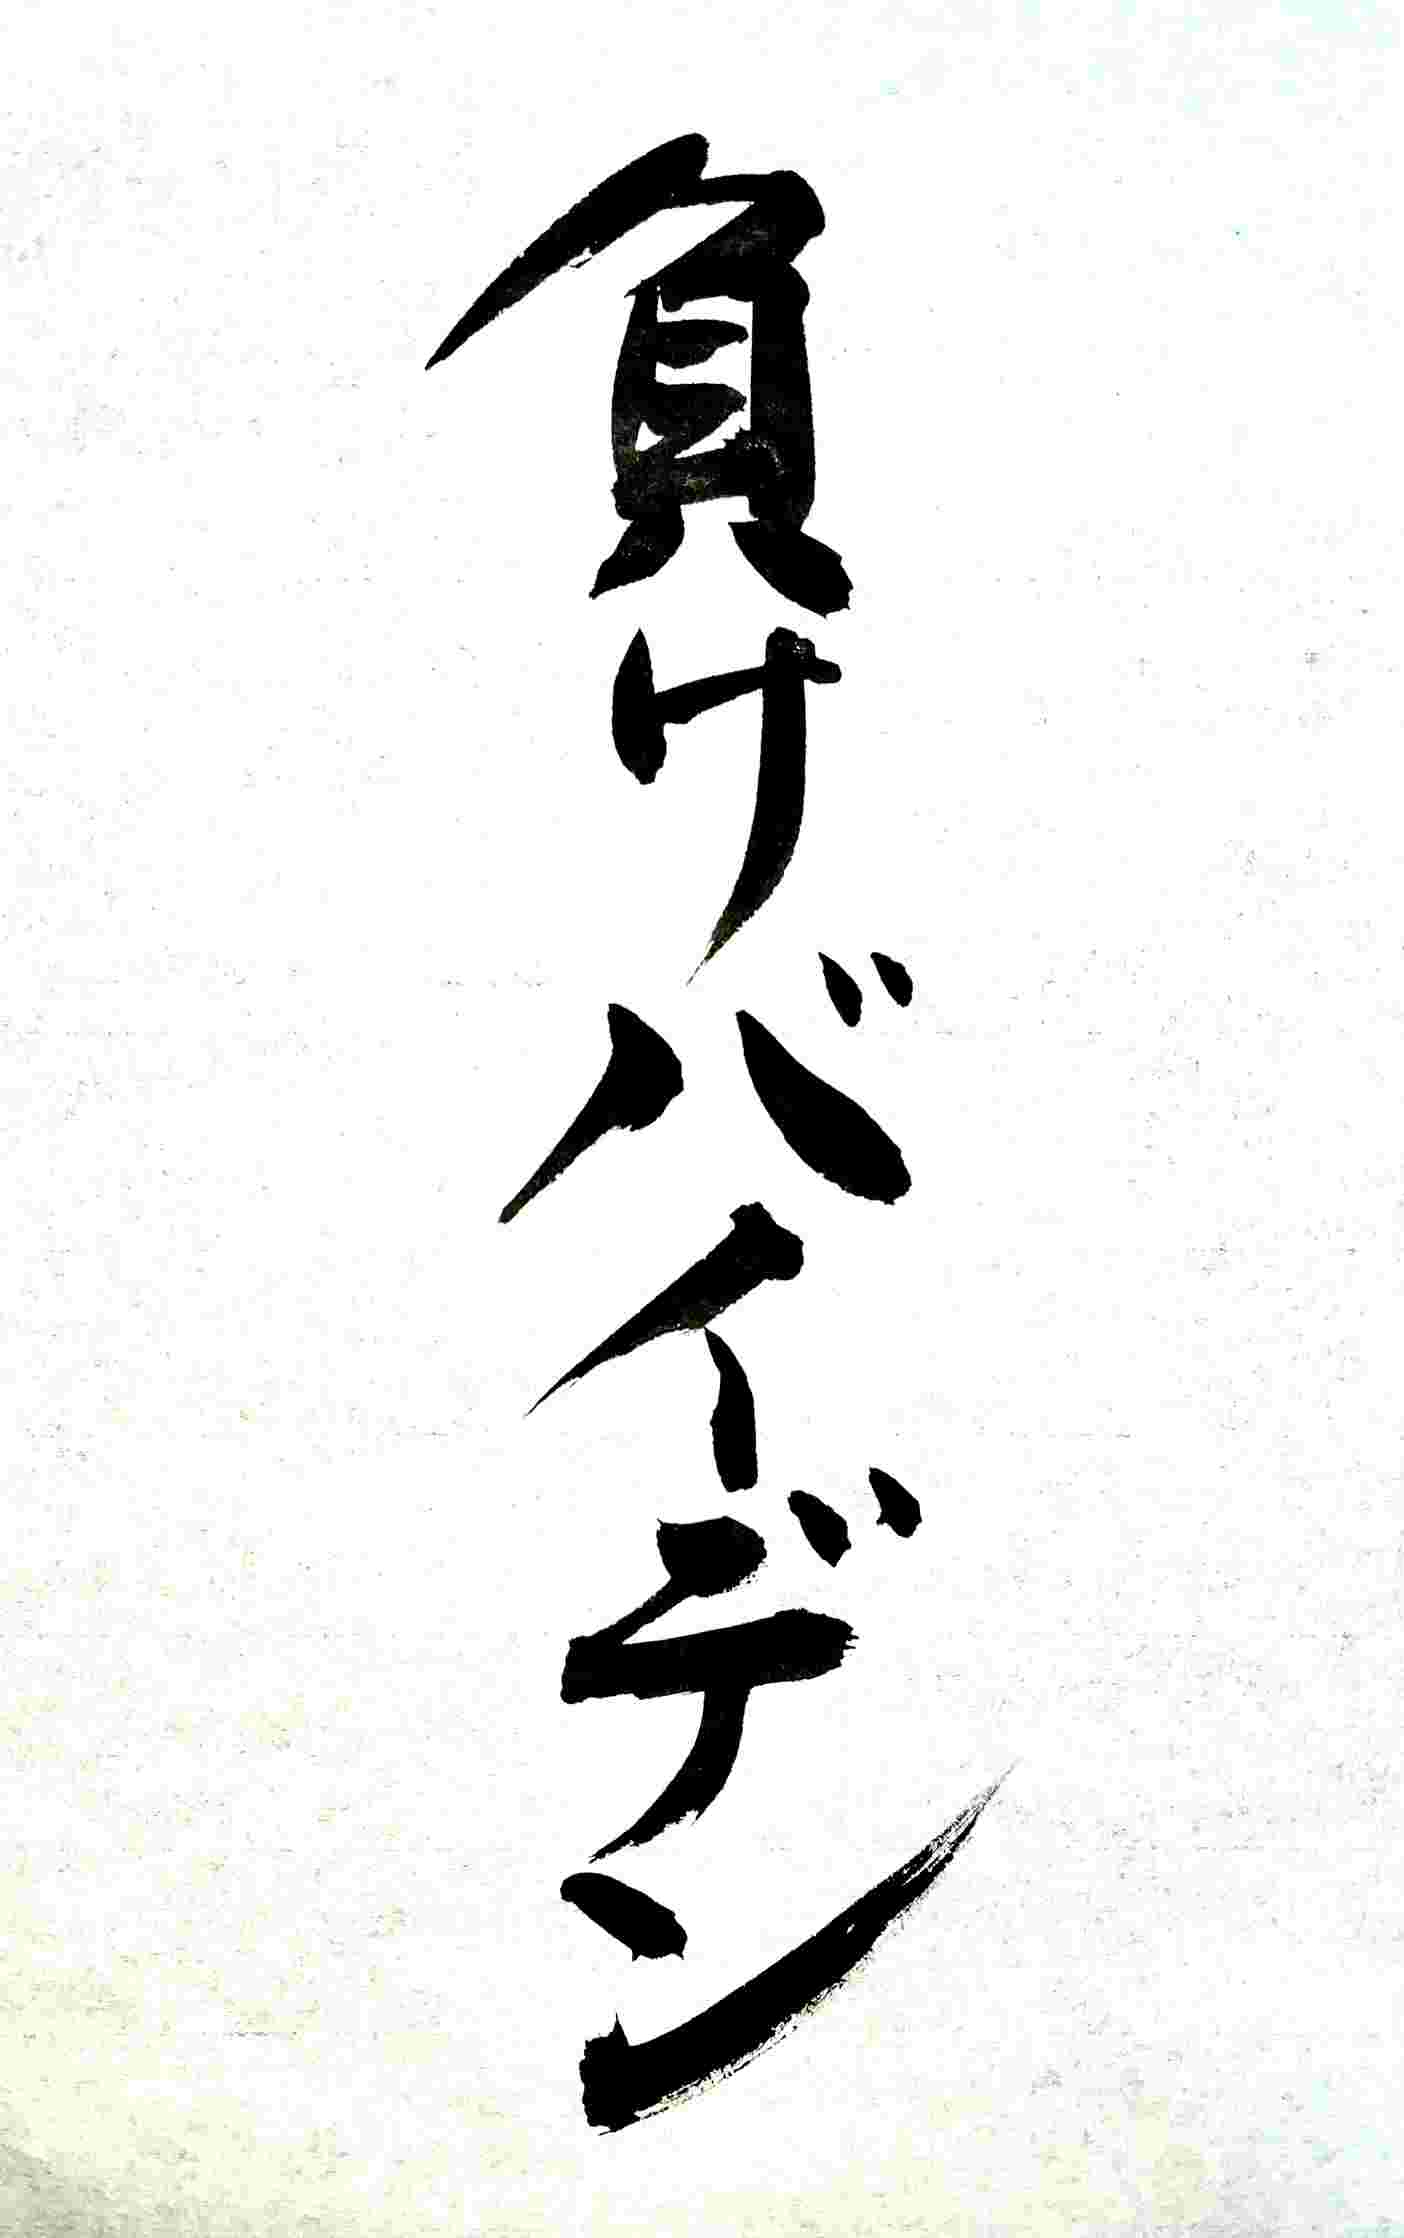 負けバイデン